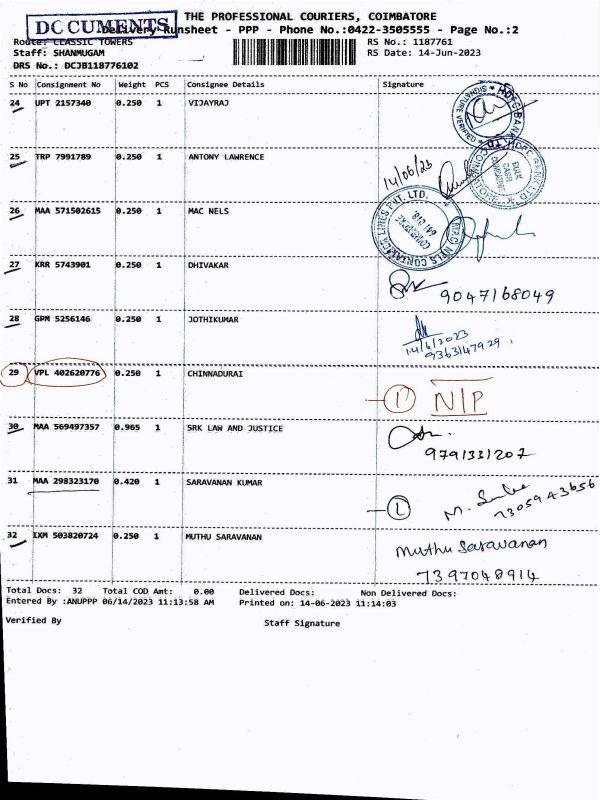 THE PROFESSIONAL COURIERS, COIMBATORE
DOCUMENTS
Delivery Runsheet - PPP - Phone No.:0422-3505555 - Page No.:2
Route: CLASSIC TOWERS RS No.: 1187761
Staff: SHANMUGAM RS Date: 14-Jun-2023
DRS No.: DCJB118776102
S No Consignment No Weight PCS Consignee Details Signature
24 UPT 2157340 0.250 1 VIJAYRAJ
HDFC BANK LTD SIGNATURE VERIFIED
25 TRP 7991789 0.250 1 ANTONY LAWRENCE
14/06/23
26 MAA 571502615 0.250 1 MAC NELS
641 018.
27 KRR 5743901 0.250 1 DHIVAKAR
9047168049
28 GPM 5256146 0.250 1 JOTHIKUMAR
14/6/2023
9363147929
29 VPL 402620776 0.250 1 CHINNADURAI
1 N/P
30 MAA 569497357 0.965 1 SRK LAW AND JUSTICE
9791331207
31 MAA 298323170 0.420 1 SARAVANAN KUMAR
7305943656
32 IXM 503820724 0.250 1 MUTHU SARAVANAN
Muthu Saravanan
7397048914
Total Docs: 32 Total COD Amt: 0.00 Delivered Docs: Non Delivered Docs:
Entered By :ANUPPP 06/14/2023 11:13:58 AM Printed on: 14-06-2023 11:14:03
Verified By Staff Signature